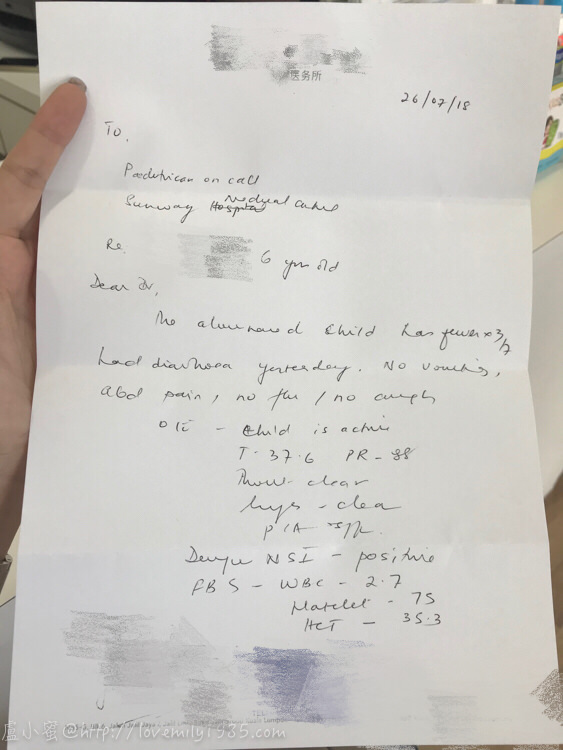 医务所
26/07/18
To,
Paedatrican on call
Sunway Medical Centre
Re. 6 yrs old
Dear Dr,
The abovenamed child has fever x 3/7
had diarrhoea yesterday. No vomiting,
abd pain, no flu / no cough
O/E - Child is active
T - 37.6 PR - 88
Throat - clear
lungs - clear
P/A - soft.
Dengue NSI - positive
FBS - WBC - 2.7
Platelet - 75
HCT - 35.3
盧小蜜@http://lovemily1935.com